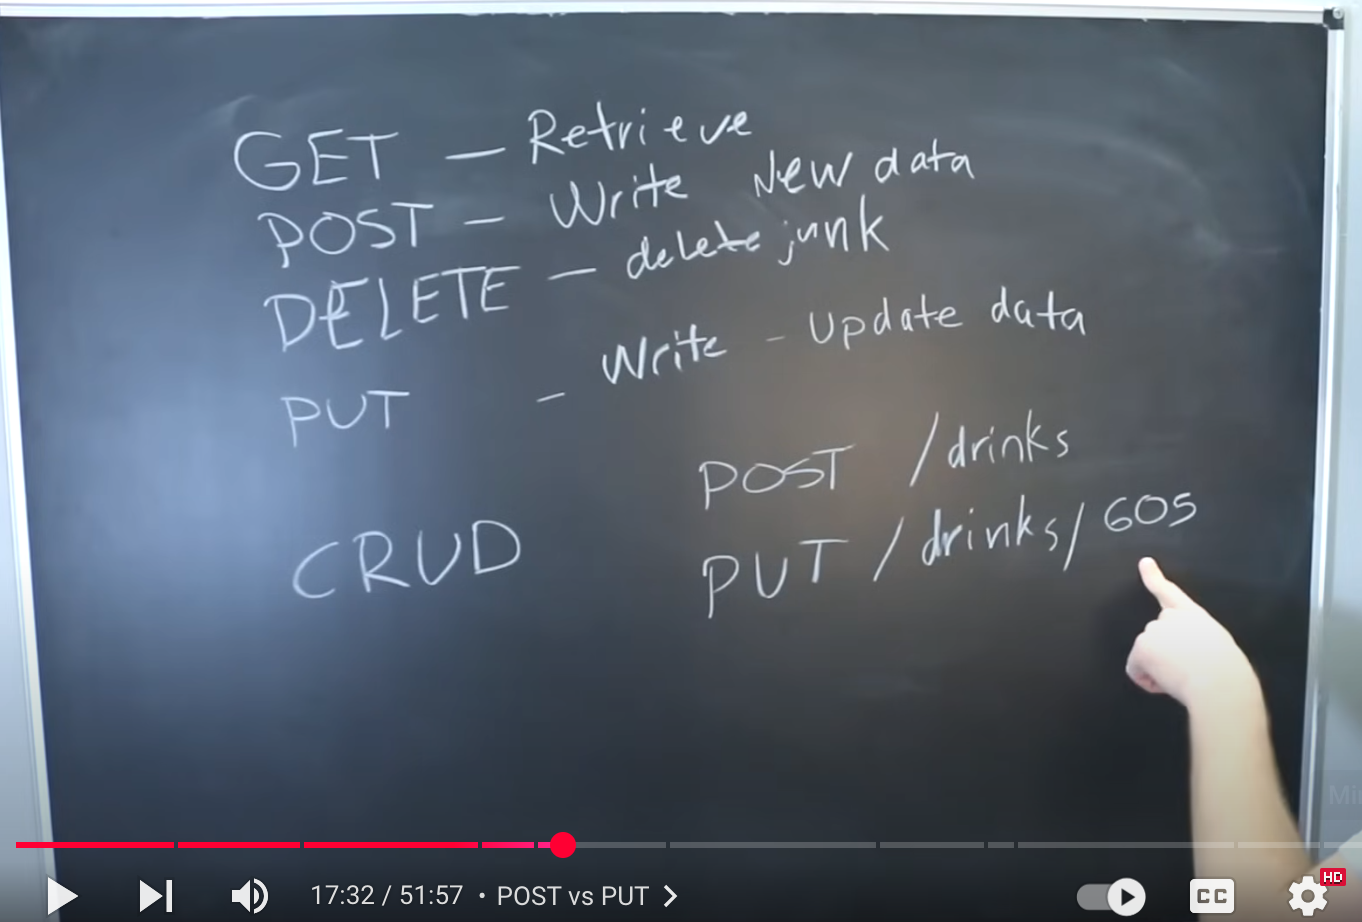 GET – Retrieve
POST – Write New data
DELETE – delete junk
PUT – Write - Update data
POST /drinks
PUT /drinks/605
CRUD
17:32 / 51:57 • POST vs PUT
CC
HD